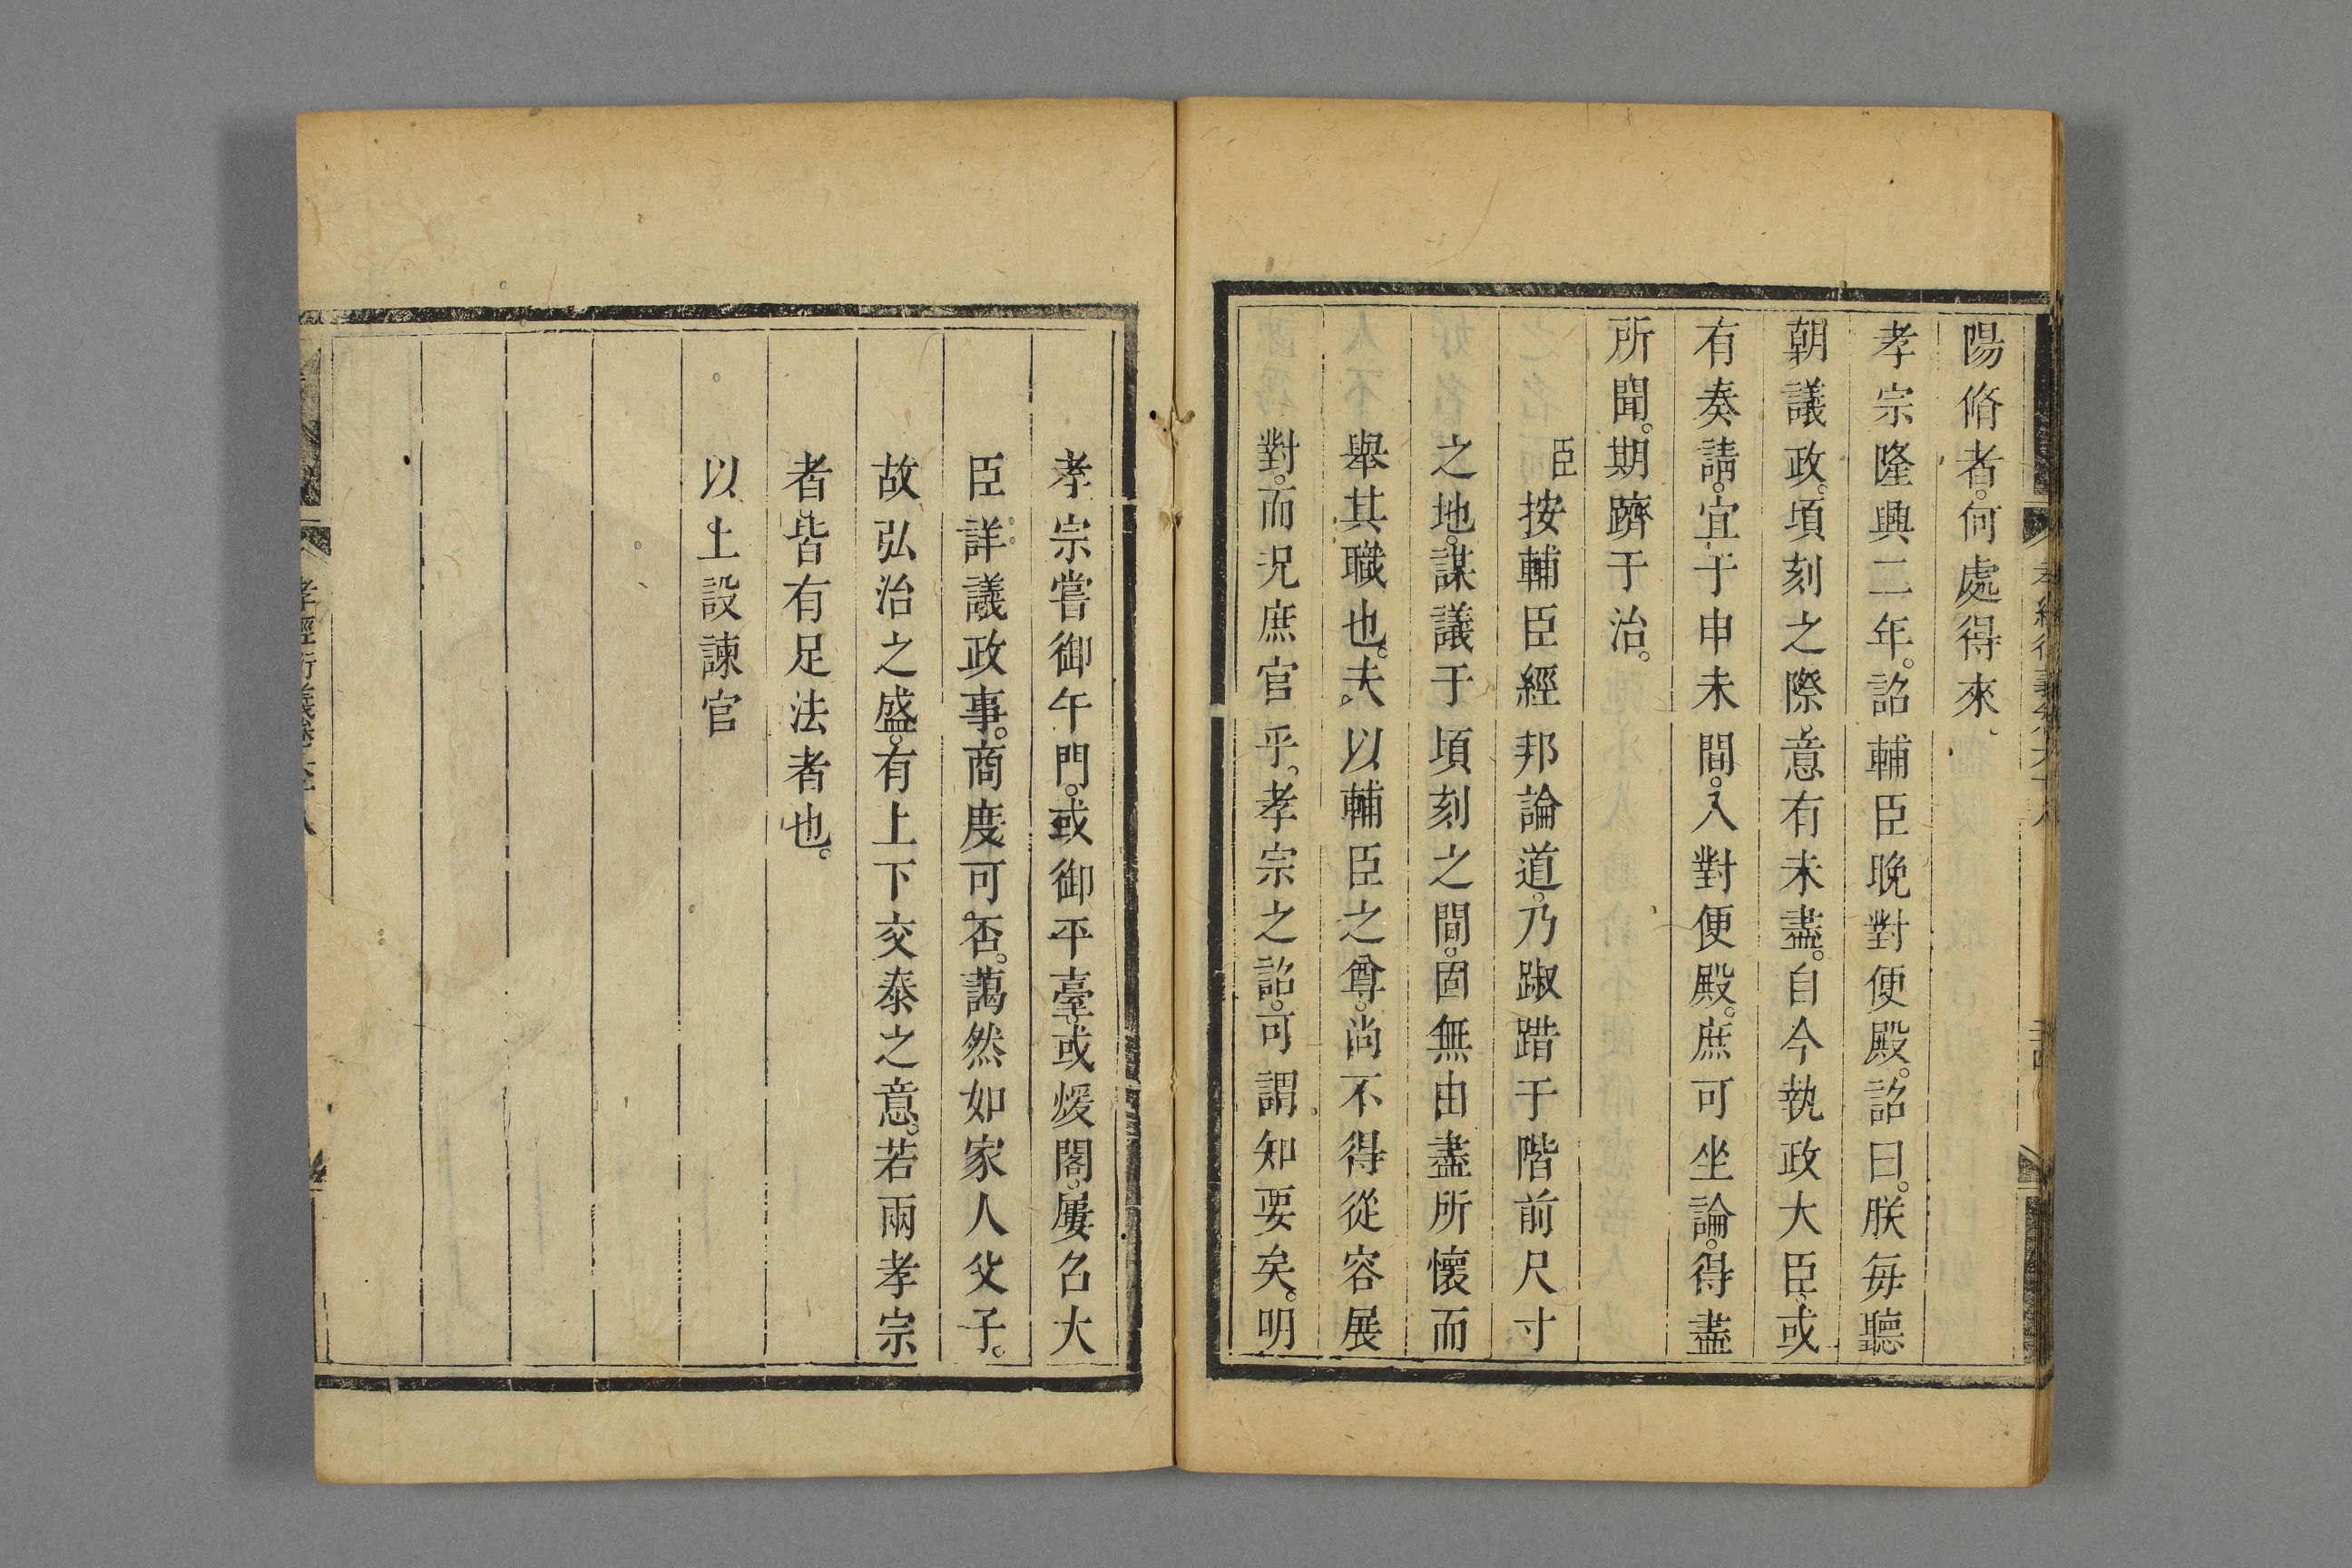 陽脩者。何處得來。
孝宗隆興二年。詔輔臣晚對便殿。詔曰。朕每聽
朝議政。頃刻之際。意有未盡。自今執政大臣。或
有奏請。宜于申未間。入對便殿。庶可坐論。得盡
所聞。期躋于治。
臣按輔臣經邦論道。乃踧踖于階前尺寸
之地。謀議于頃刻之間。固無由盡所懷而
舉其職也。夫以輔臣之尊。尚不得從容展
對。而況庶官乎。孝宗之詔。可謂知要矣。明
孝宗嘗御午門。或御平臺。或煖閣。屢召大
臣詳議政事。商度可否。藹然如家人父子。
故弘治之盛。有上下交泰之意。若兩孝宗
者。皆有足法者也。
以上設諫官
孝經衍義卷六十八